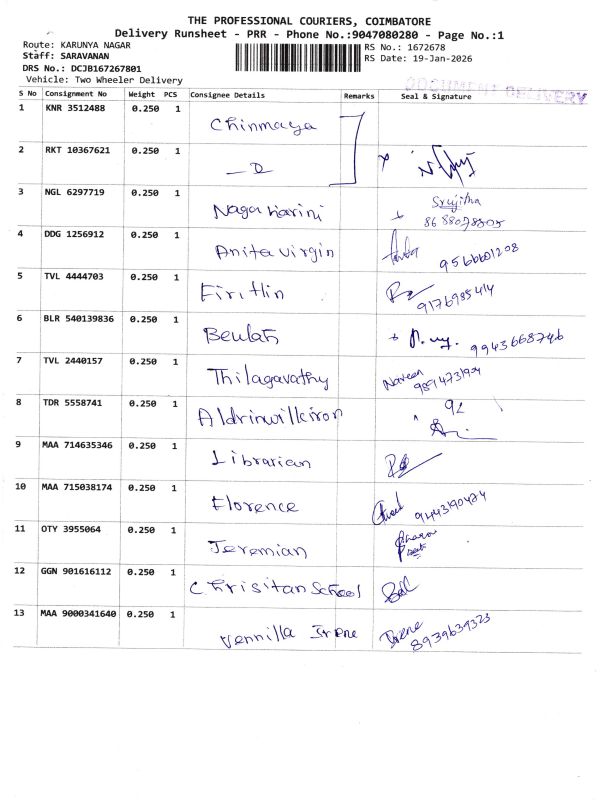 THE PROFESSIONAL COURIERS, COIMBATORE
Delivery Runsheet - PRR - Phone No.:9047080280 - Page No.:1
Route: KARUNYA NAGAR
Staff: SARAVANAN
DRS No.: DCJB167267801
Vehicle: Two Wheeler Delivery
RS No.: 1672678
RS Date: 19-Jan-2026
DOCUMENT DELIVERY
S No Consignment No Weight PCS Consignee Details Remarks Seal & Signature
1 KNR 3512488 0.250 1 Chinmaya
2 RKT 10367621 0.250 1 —D
3 NGL 6297719 0.250 1 Nagaharini Srujitha
8688078505
4 DDG 1256912 0.250 1 Anita virgin 9566601208
5 TVL 4444703 0.250 1 9176985414
6 BLR 540139836 0.250 1 Beulah 9943668746
7 TVL 2440157 0.250 1 Thilagavathy Naveen
8 TDR 5558741 0.250 1
9 MAA 714635346 0.250 1 Librarian
10 MAA 715038174 0.250 1 Florence
11 OTY 3955064 0.250 1 Jeremian
12 GGN 901616112 0.250 1 Chrisitan School
13 MAA 9000341640 0.250 1 Vennilla Irene Irene
8939639323